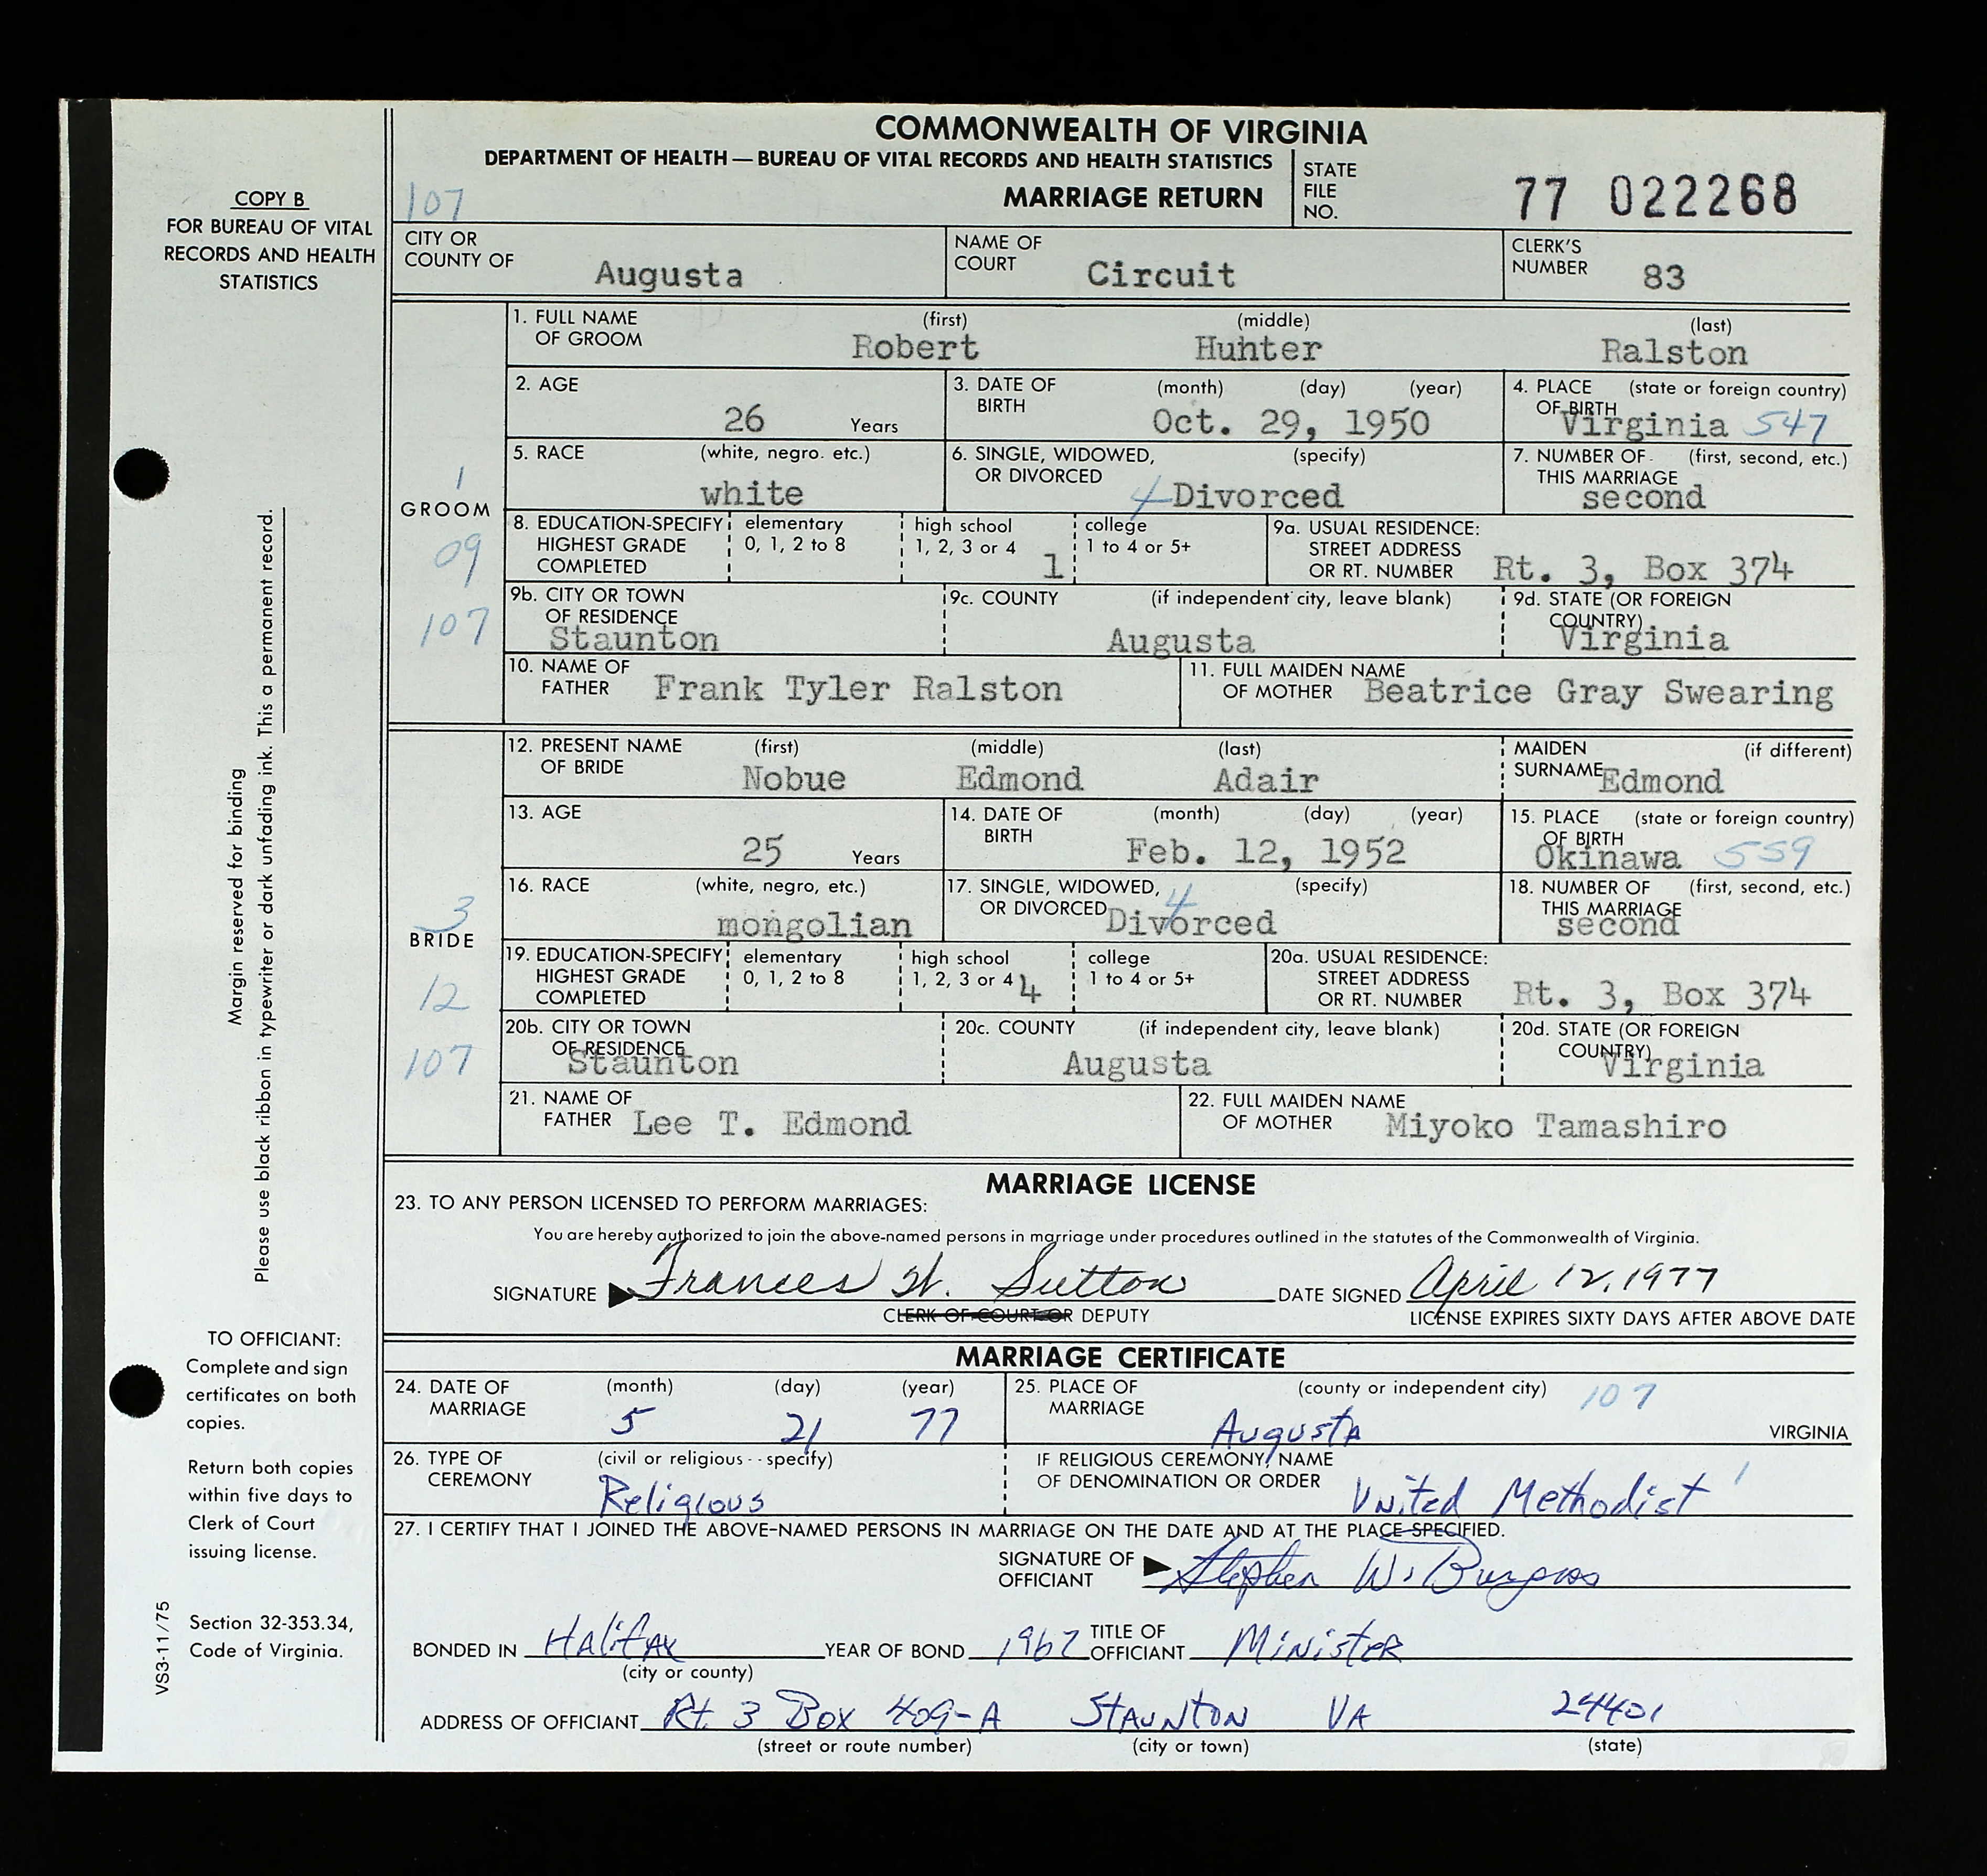 COMMONWEALTH OF VIRGINIA
DEPARTMENT OF HEALTH — BUREAU OF VITAL RECORDS AND HEALTH STATISTICS
107 MARRIAGE RETURN
STATE FILE NO. 77 022268
COPY B
FOR BUREAU OF VITAL
RECORDS AND HEALTH
STATISTICS
CITY OR COUNTY OF Augusta NAME OF COURT Circuit CLERK'S NUMBER 83
GROOM
1
09
107
1. FULL NAME OF GROOM (first) Robert (middle) Hunter (last) Ralston
2. AGE 26 Years 3. DATE OF BIRTH (month) (day) (year) Oct. 29, 1950 4. PLACE OF BIRTH (state or foreign country) Virginia 547
5. RACE (white, negro. etc.) white 6. SINGLE, WIDOWED, OR DIVORCED (specify) 4 Divorced 7. NUMBER OF THIS MARRIAGE (first, second, etc.) second
8. EDUCATION-SPECIFY HIGHEST GRADE COMPLETED elementary 0, 1, 2 to 8 high school 1, 2, 3 or 4 1 college 1 to 4 or 5+ 9a. USUAL RESIDENCE: STREET ADDRESS OR RT. NUMBER Rt. 3, Box 374
9b. CITY OR TOWN OF RESIDENCE Staunton 9c. COUNTY (if independent city, leave blank) Augusta 9d. STATE (OR FOREIGN COUNTRY) Virginia
10. NAME OF FATHER Frank Tyler Ralston 11. FULL MAIDEN NAME OF MOTHER Beatrice Gray Swearing
BRIDE
3
12
107
12. PRESENT NAME OF BRIDE (first) Nobue (middle) Edmond (last) Adair MAIDEN SURNAME (if different) Edmond
13. AGE 25 Years 14. DATE OF BIRTH (month) (day) (year) Feb. 12, 1952 15. PLACE OF BIRTH (state or foreign country) Okinawa 559
16. RACE (white, negro, etc.) mongolian 17. SINGLE, WIDOWED, OR DIVORCED (specify) 4 Divorced 18. NUMBER OF THIS MARRIAGE (first, second, etc.) second
19. EDUCATION-SPECIFY HIGHEST GRADE COMPLETED elementary 0, 1, 2 to 8 high school 1, 2, 3 or 4 4 college 1 to 4 or 5+ 20a. USUAL RESIDENCE: STREET ADDRESS OR RT. NUMBER Rt. 3, Box 374
20b. CITY OR TOWN OF RESIDENCE Staunton 20c. COUNTY (if independent city, leave blank) Augusta 20d. STATE (OR FOREIGN COUNTRY) Virginia
21. NAME OF FATHER Lee T. Edmond 22. FULL MAIDEN NAME OF MOTHER Miyoko Tamashiro
MARRIAGE LICENSE
23. TO ANY PERSON LICENSED TO PERFORM MARRIAGES:
You are hereby authorized to join the above-named persons in marriage under procedures outlined in the statutes of the Commonwealth of Virginia.
SIGNATURE Frances W. Sutton DATE SIGNED April 12, 1977
CLERK OF COURT OR DEPUTY LICENSE EXPIRES SIXTY DAYS AFTER ABOVE DATE
MARRIAGE CERTIFICATE
24. DATE OF MARRIAGE (month) 5 (day) 21 (year) 77 25. PLACE OF MARRIAGE (county or independent city) 107 Augusta VIRGINIA
26. TYPE OF CEREMONY (civil or religious--specify) Religious IF RELIGIOUS CEREMONY, NAME OF DENOMINATION OR ORDER United Methodist 1
27. I CERTIFY THAT I JOINED THE ABOVE-NAMED PERSONS IN MARRIAGE ON THE DATE AND AT THE PLACE SPECIFIED.
SIGNATURE OF OFFICIANT Stephen W. Burgess
BONDED IN Halifax YEAR OF BOND 1967 TITLE OF OFFICIANT Minister
(city or county)
ADDRESS OF OFFICIANT Rt. 3 Box 409-A Staunton VA 24401
(street or route number) (city or town) (state)
Margin reserved for binding
Please use black ribbon in typewriter or dark unfading ink. This a permanent record.
TO OFFICIANT:
Complete and sign
certificates on both
copies.
Return both copies
within five days to
Clerk of Court
issuing license.
Section 32-353.34,
Code of Virginia.
VS3-11/75